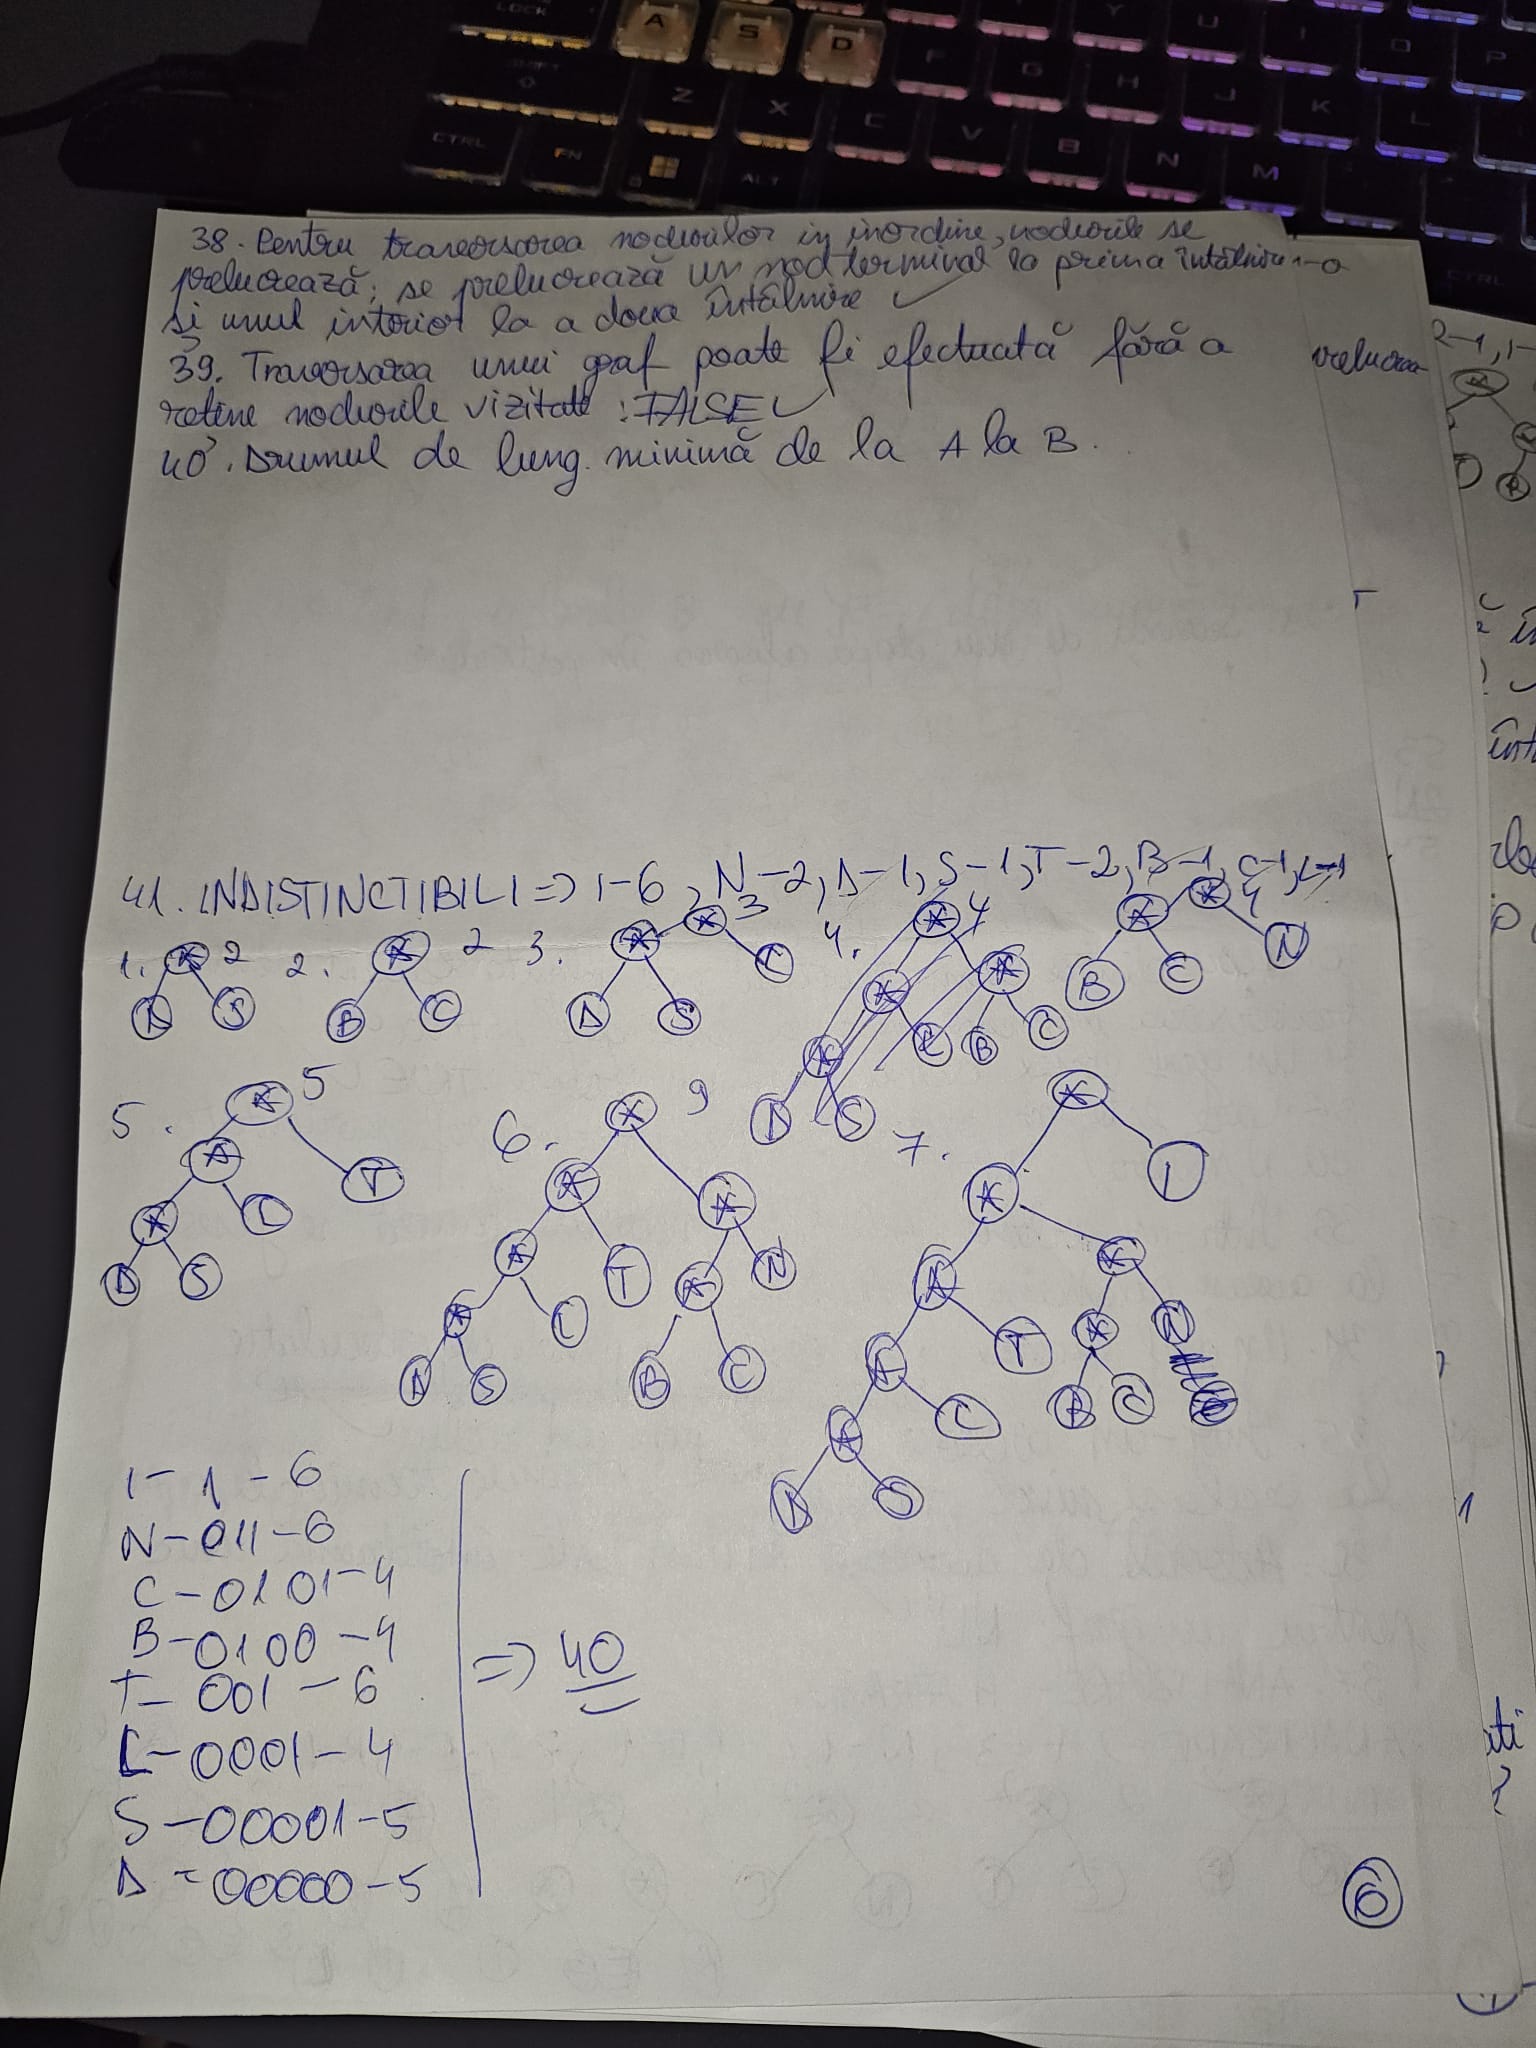 LOCK A S D F G H J K L Y U I O P
SHIFT Z X C V B N M
CTRL FN ALT CTRL
38. Pentru traversarea nodurilor in inordine, nodurile se
prelucrează; se prelucrează un nod terminal la prima întâlnire
și unul interior la a doua întâlnire ✓
39. Traversarea unui graf poate fi efectuată fără a
reține nodurile vizitate : FALSE ✓
40. Drumul de lung. minimă de la A la B.
41. INDISTINCTIBILI => I-6, N-2, D-1, S-1, T-2, B-1, C-1, L-1
1. * 2 2. * 2 3. * * 3 4. * 4 * * 4
D S B C D S L * * B C N
* L B C
D S
5. * 5 6. * 9 7. *
* T * * * I
* L * T * N * *
D S * L B C * T * N
D S * L B C
* S
D
I - 1 - 6
N - 011 - 6
C - 0101 - 4
B - 0100 - 4
T - 001 - 6
L - 0001 - 4
S - 00001 - 5
D - 00000 - 5
=> 40
6